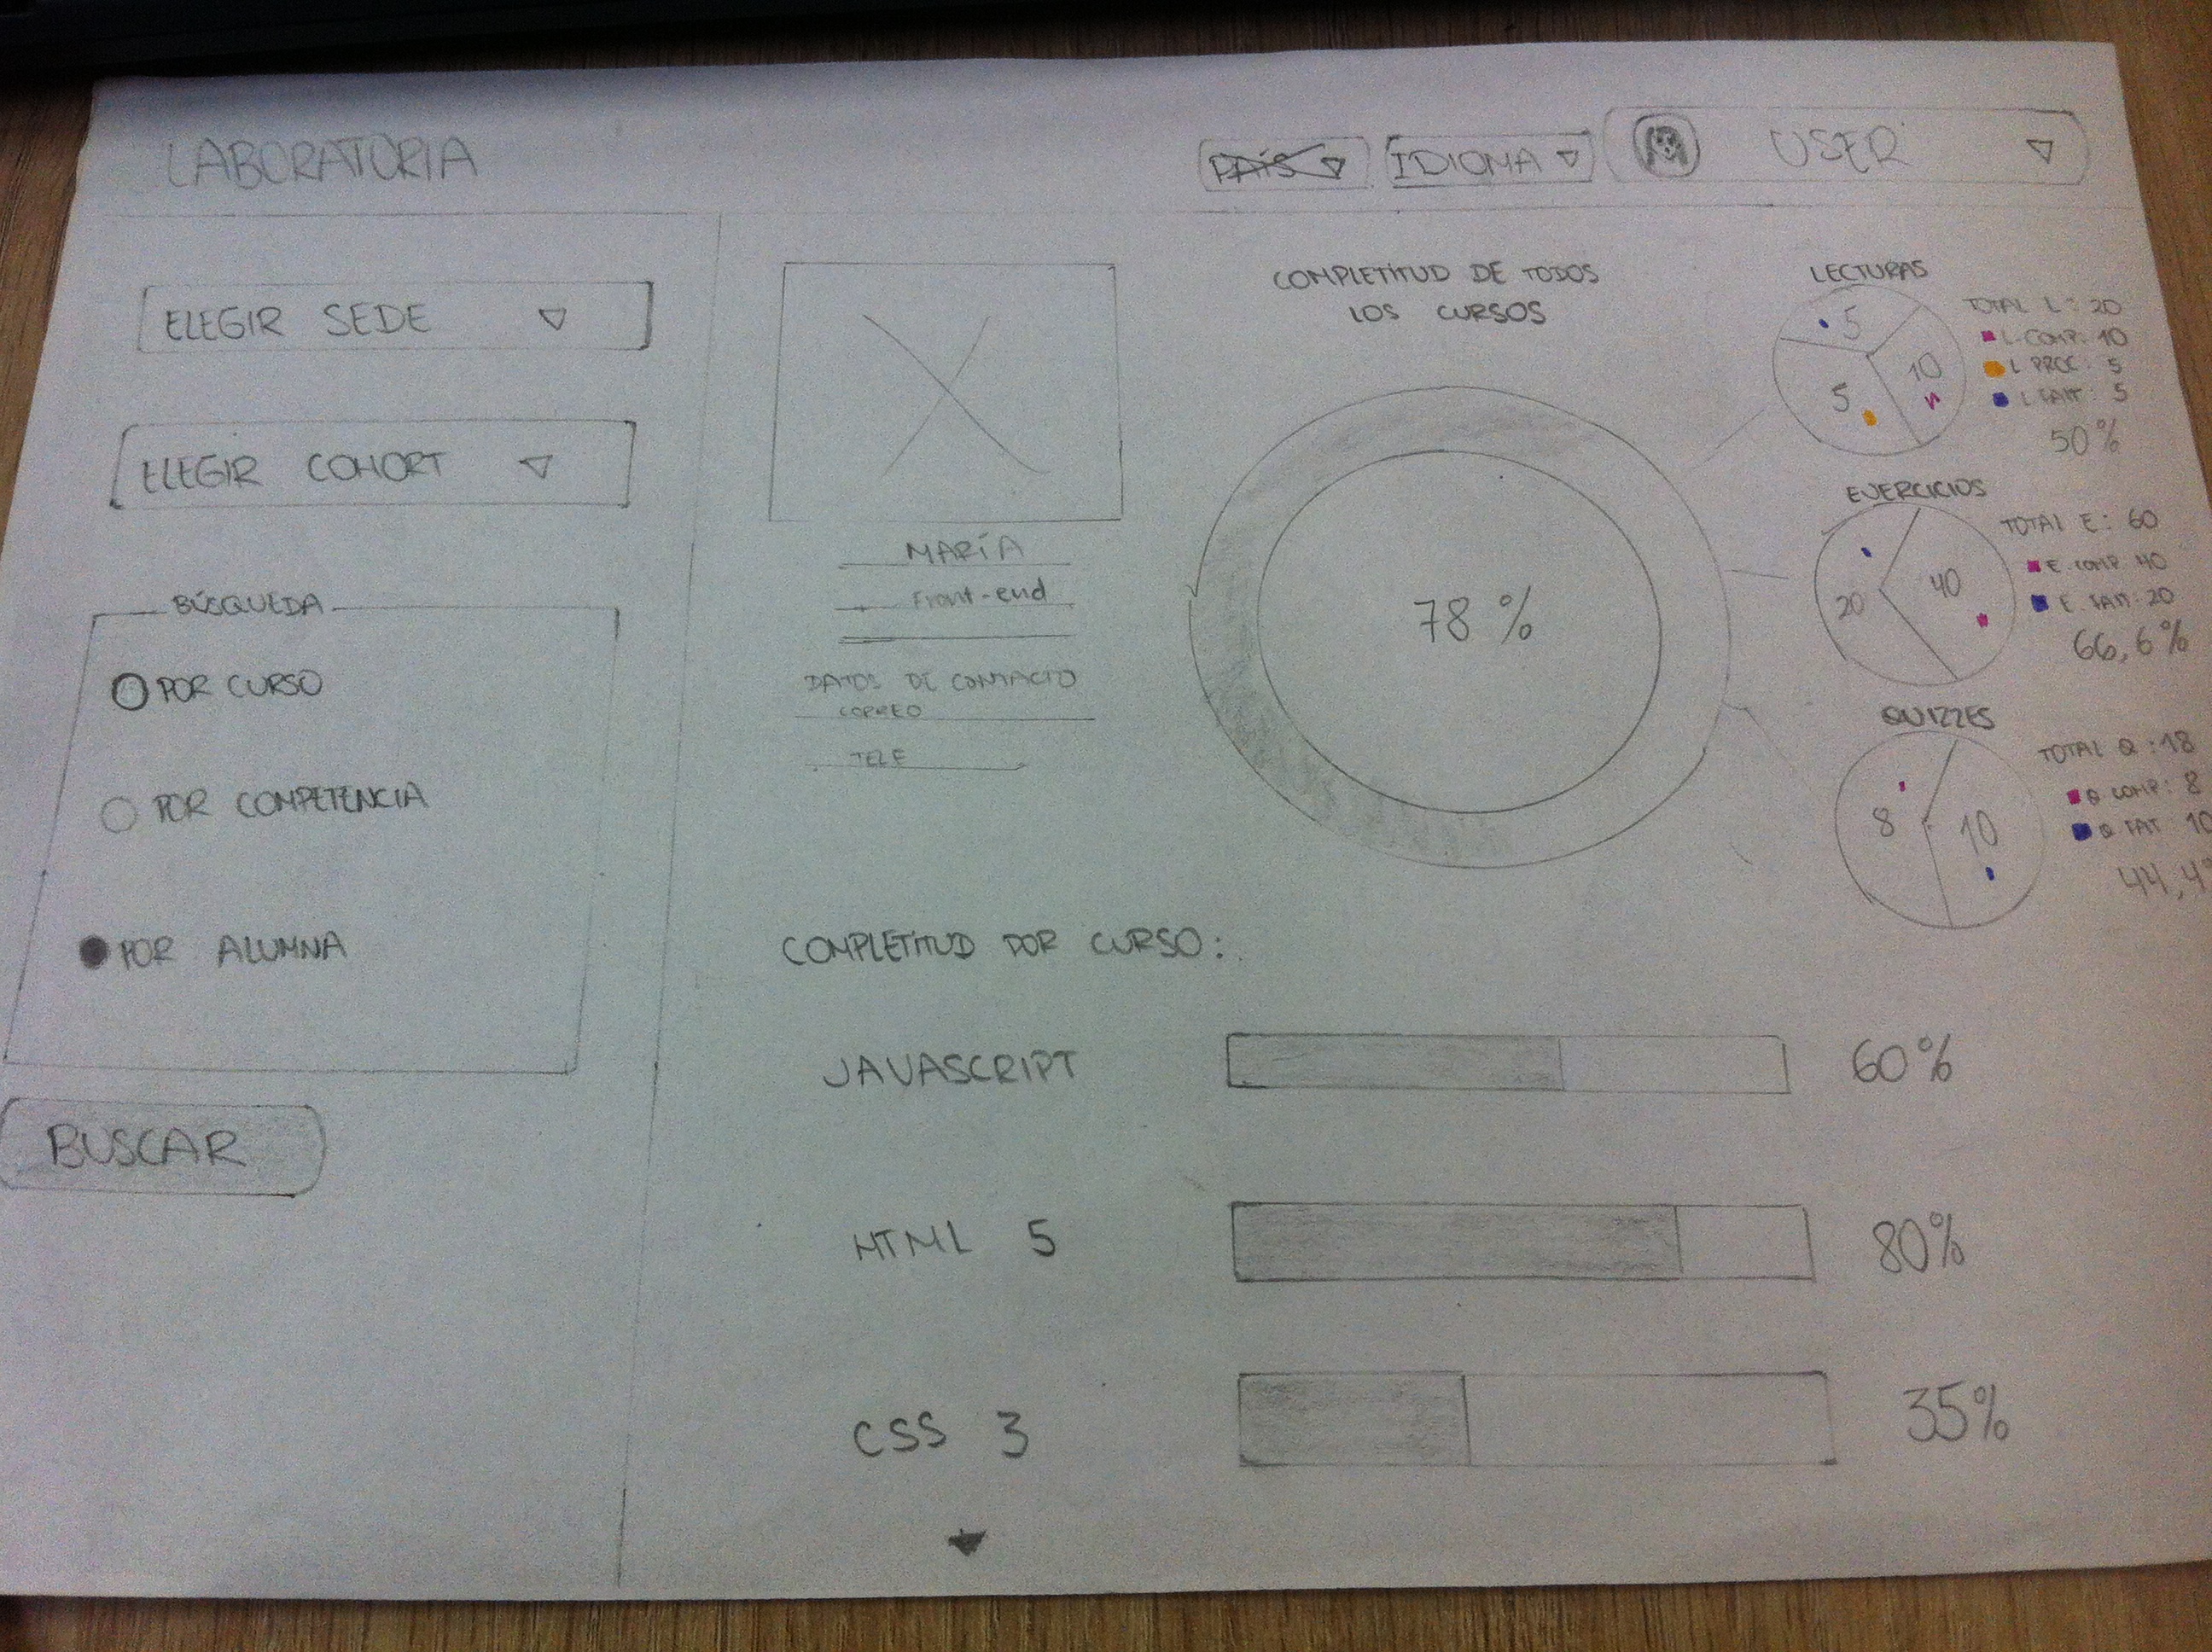 LABORATORIA
PAÍS
IDIOMA
USER
ELEGIR SEDE
ELEGIR COHORT
BÚSQUEDA
POR CURSO
POR COMPETENCIA
POR ALUMNA
BUSCAR
MARÍA
Front-end
DATOS DE CONTACTO
CORREO
TELE
COMPLETITUD DE TODOS
LOS CURSOS
78 %
LECTURAS
5
10
5
TOTAL L : 20
L. COMP: 10
L PROC : 5
L FALT : 5
50 %
EJERCICIOS
20
40
TOTAL E : 60
E. COMP 40
E. FALT. 20
66,6 %
QUIZZES
8
10
TOTAL Q : 18
Q COMP : 8
Q FAT 10
44,4
COMPLETITUD POR CURSO :
JAVASCRIPT
60%
HTML 5
80%
CSS 3
35%